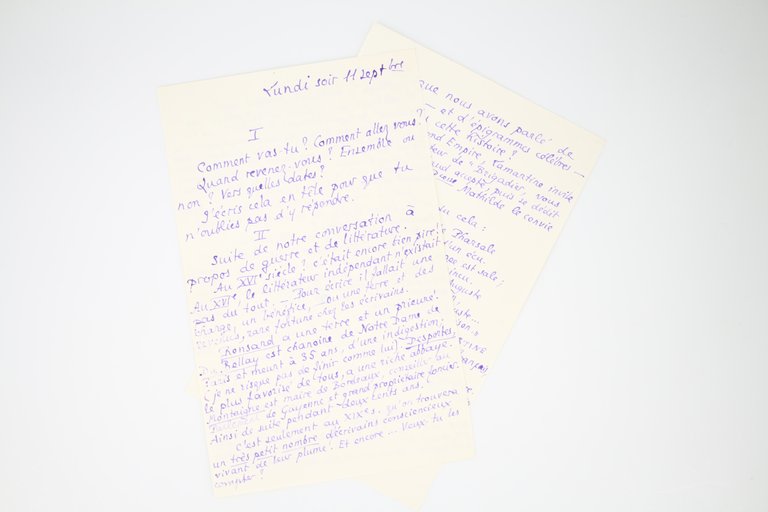 Lundi soir 11 septbre
I
Comment vas tu? Comment allez vous?
Quand revenez-vous? Ensemble ou
non? Vers quelles dates?
J'écris cela en tête pour que tu
n'oublies pas d'y répondre.
II
Suite de notre conversation à
propos de guerre et de littérature.
Au XVIe siècle? c'était encore bien pire!
Au XVIe, le littérateur indépendant n'existait
pas du tout. — Pour écrire il fallait une
charge, un bénéfice, — ou une terre et des
revenus, rare fortune chez les écrivains.
Ronsard a une terre et un prieuré.
Du Bellay est chanoine de Notre Dame de
Paris et meurt à 35 ans, d'une indigestion.
(je ne risque pas de finir comme lui). Desportes,
le plus favorisé de tous, a une riche abbaye.
Montaigne est maire de Bordeaux, conseiller au
de Guyenne et grand propriétaire foncier.
Ainsi de suite pendant deux cents ans.
C'est seulement au XIXe s. qu'on trouvera
un très petit nombre d'écrivains consciencieux
vivant de leur plume. Et encore... Veux-tu les
compter?
que nous avons parlé de
et d'épigrammes célèbres —
cette histoire?
Empire, Lamartine invite
de "Brigadier, vous
accepte, puis se dédit
Mathilde le convie
du cela:
Pharsale
d'un écu.
est sale;